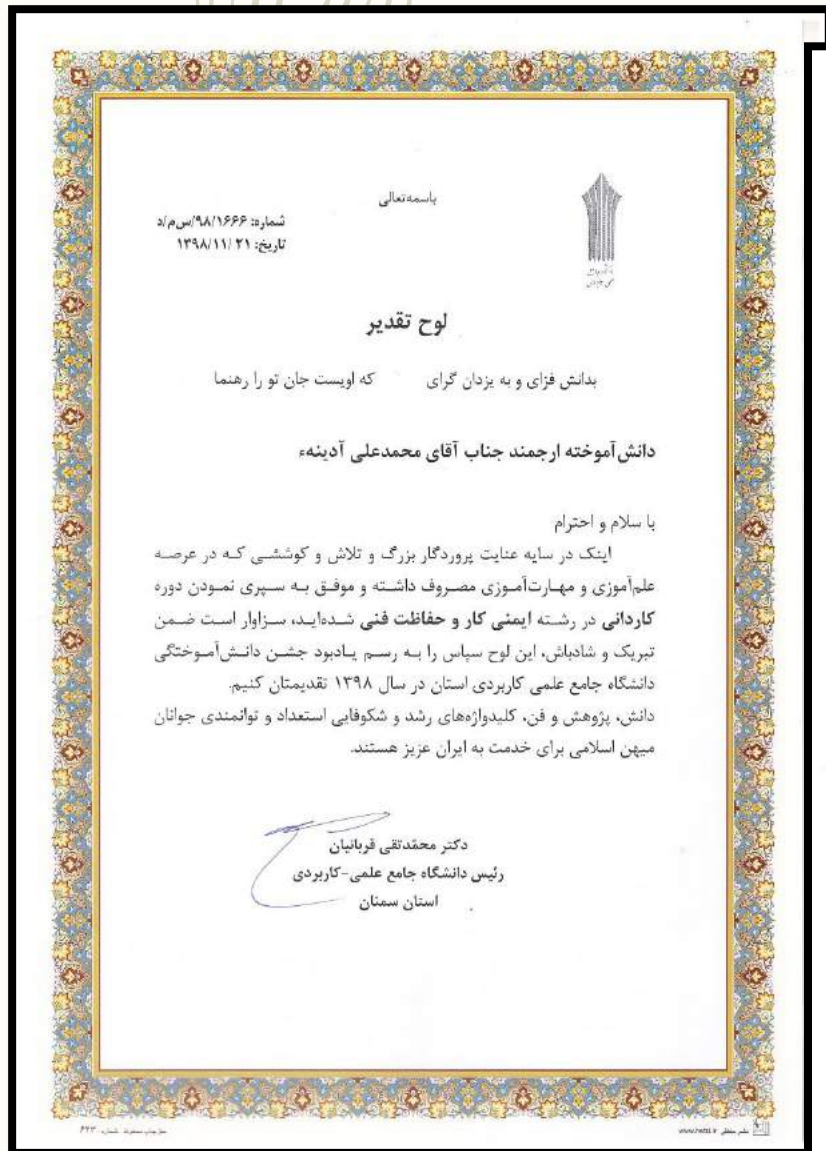 باسمه‌تعالی
شماره: ۹۸/۱۶۶۶/س‌م/د
تاریخ: ۲۱ /۱۳۹۸/۱۱
لوح تقدیر
بدانش فزای و به یزدان گرای که اویست جان تو را رهنما
دانش‌آموخته ارجمند جناب آقای محمدعلی آدینهء
با سلام و احترام
اینک در سایه عنایت پروردگار بزرگ و تلاش و کوششی که در عرصه
علم‌آموزی و مهارت‌آموزی مصروف داشته و موفق به سپری نمودن دوره
کاردانی در رشته ایمنی کار و حفاظت فنی شده‌اید، سزاوار است ضمن
تبریک و شادباش، این لوح سپاس را به رسم یادبود جشن دانش‌آموختگی
دانشگاه جامع علمی کاربردی استان در سال ۱۳۹۸ تقدیمتان کنیم.
دانش، پژوهش و فن، کلیدواژه‌های رشد و شکوفایی استعداد و توانمندی جوانان
میهن اسلامی برای خدمت به ایران عزیز هستند.
دکتر محمّدتقی قربانیان
رئیس دانشگاه جامع علمی-کاربردی
استان سمنان